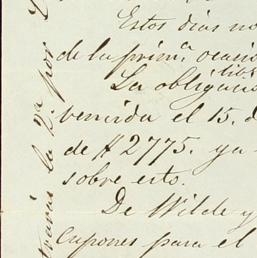 Estos dias no
de la primª. ocasio
libr
La obligaci
vencida el 15. d
de $ 2775. ya
sobre esto.
De Wilde y
Cupones para el
trarás la 2ª. por